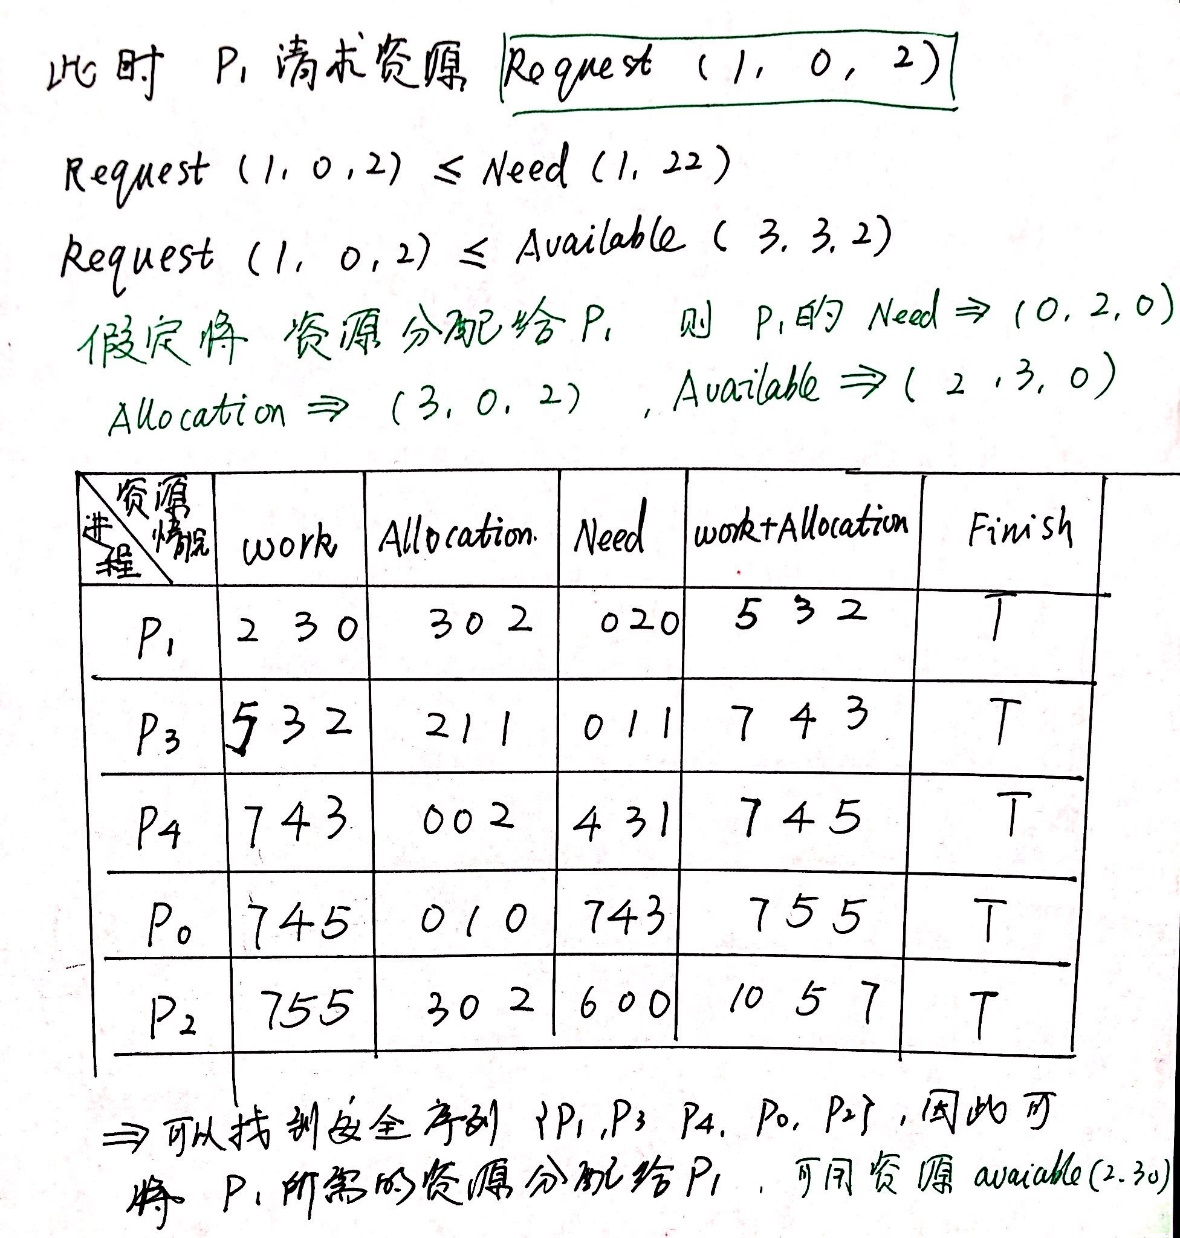 此时 P₁ 请求资源 Request (1, 0, 2)
Request (1, 0, 2) ≤ Need (1, 22)
Request (1, 0, 2) ≤ Available (3, 3, 2)
假定将 资源分配给P₁ 则 P₁的 Need ⇒ (0, 2, 0)
Allocation ⇒ (3, 0, 2) , Available ⇒ (2, 3, 0)
资源情况 进程 work Allocation. Need work+Allocation Finish
P₁ 2 3 0 3 0 2 0 2 0 5 3 2 T
P₃ 5 3 2 2 1 1 0 1 1 7 4 3 T
P₄ 7 4 3 0 0 2 4 3 1 7 4 5 T
P₀ 7 4 5 0 1 0 7 4 3 7 5 5 T
P₂ 7 5 5 3 0 2 6 0 0 10 5 7 T
⇒ 可以找到安全序列 {P₁, P₃ P₄, P₀, P₂}, 因此可
将 P₁ 所需的资源分配给P₁ , 可用资源 avaiable (2.30)